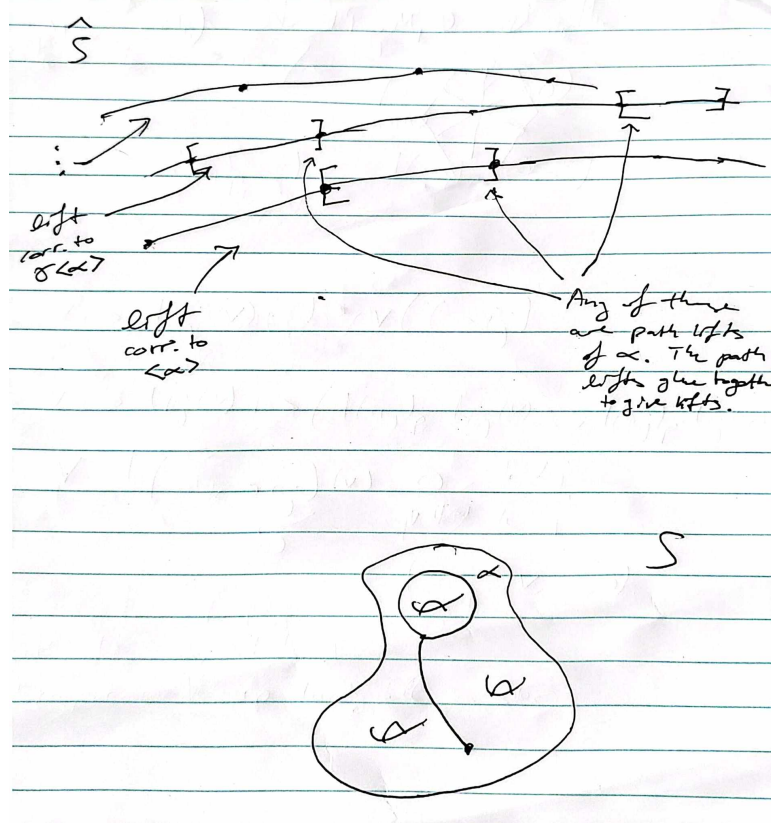 Ŝ
lift
corr. to
γ<α>
lift
corr. to
<α>
Any of these
are path lifts
of α. The path
lifts glue together
to give lifts.
S
α